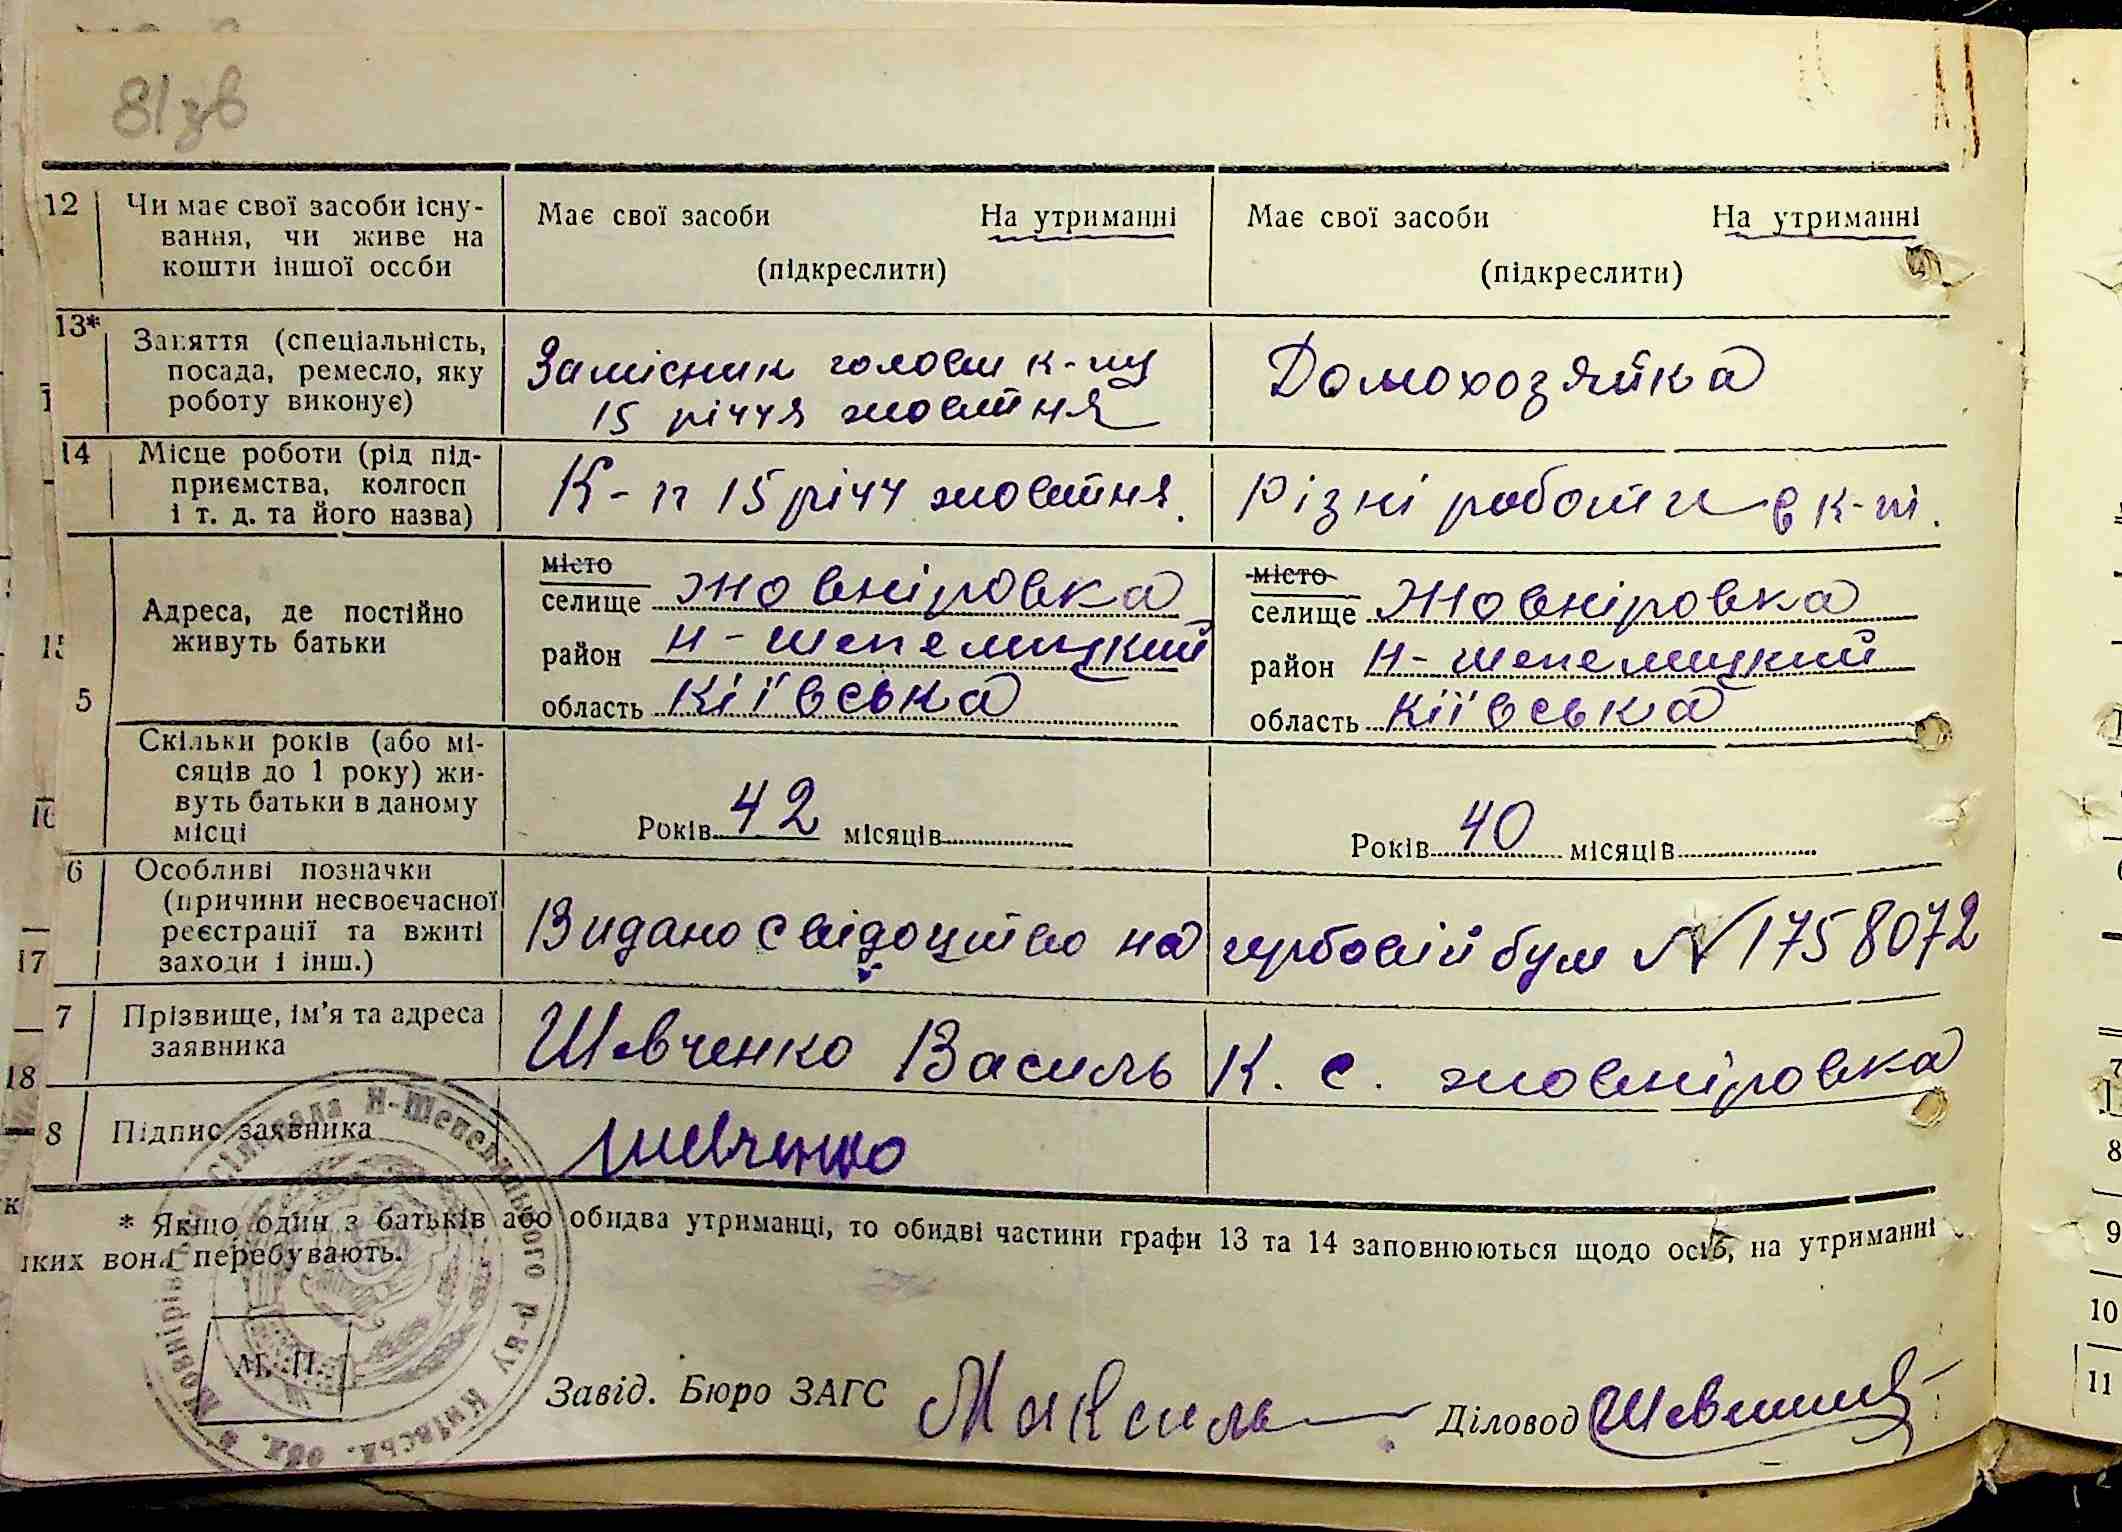 81зв
12 Чи має свої засоби існу-
вання, чи живе на
кошти іншої особи
Має свої засоби На утриманні
(підкреслити)
Має свої засоби На утриманні
(підкреслити)
13* Заняття (спеціальність,
посада, ремесло, яку
роботу виконує)
Замісник голови к-пу
15 річчя жовтня
Домохозяйка
14 Місце роботи (рід під-
приємства, колгосп
і т. д. та його назва)
К-п 15 річч жовтня.
Різні роботи в к-пі.
Адреса, де постійно
живуть батьки
місто
селище Жовніровка
район Н-Шепелицкий
область Кіївська
місто
селище Жовніровка
район Н-Шепелицкий
область Кіївська
15
5
Скільки років (або мі-
сяців до 1 року) жи-
вуть батьки в даному
місці
Років 42 місяців
Років 40 місяців
16
6 Особливі позначки
(причини несвоєчасної
реєстрації та вжиті
заходи і інш.)
Видано свідоцтво на гербовій бум № 1758072
17
7 Прізвище, ім'я та адреса
заявника
Шевченко Василь К. с. Жовніровка
18
8 Підпис заявника
Шевченко
* Якщо один з батьків або обидва утриманці, то обидві частини графи 13 та 14 заповнюються щодо осіб, на утриманні
яких вони перебувають.
сільрада Н-Шепелицького р-ну Київськ. обл.
М. П.
Завід. Бюро ЗАГС
Діловод
8
9
10
11